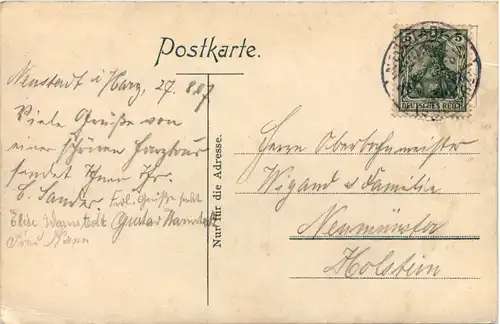 Postkarte.
Neustadt i Harz, 27. 8. 07
Viele Grüße von
einer schönen Harztour
sendet Ihnen Ihr.
E. Sander. Frdl. Grüße
Elise Warnstedt. Gustav Warnstedt
Nur für die Adresse.
5 5
DEUTSCHES REICH
Herrn Oberbahnmeister
Wigand u Familie
Neumünster
Holstein